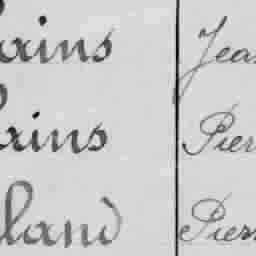 ains Jea
ains Pier
land Pierr